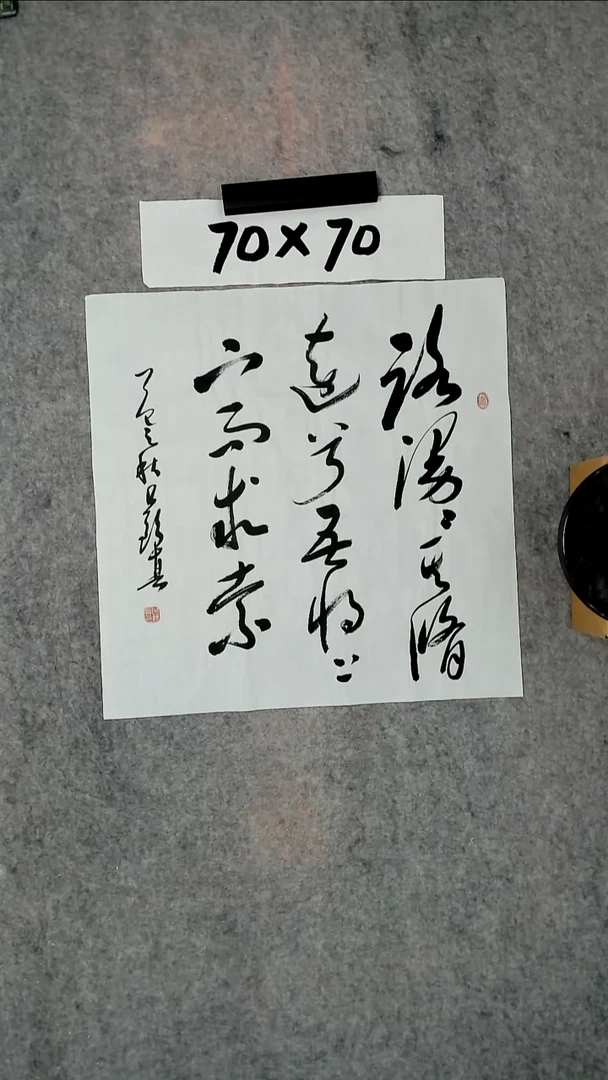 70×70
路漫漫其脩
遠兮吾将上
下而求索